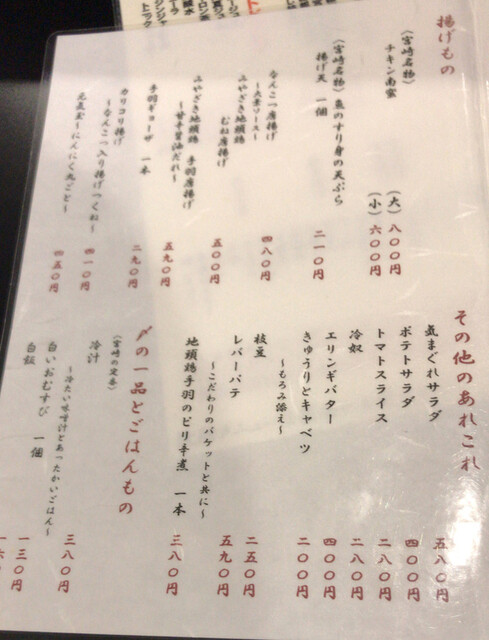 揚げもの
（宮崎名物）
チキン南蛮
（大）八〇〇円
（小）六〇〇円
（宮崎名物）魚のすり身の天ぷら
揚げ天 一個
二一〇円
なんこつ唐揚げ
～大葉ソース～
四八〇円
みやざき地頭鶏
むね唐揚げ
五〇〇円
みやざき地頭鶏 手羽唐揚げ
～甘辛醤油だれ～
五九〇円
手羽ギョーザ 一本
二九〇円
カリコリ揚げ
～なんこつ入り揚げつくね～
四一〇円
元気玉～にんにく丸ごと～
四五〇円
その他のあれこれ
気まぐれサラダ
五八〇円
ポテトサラダ
四〇〇円
トマトスライス
二八〇円
冷奴
二八〇円
エリンギバター
四〇〇円
きゅうりとキャベツ
～もろみ添え～
二〇〇円
枝豆
二五〇円
レバーパテ
～こだわりのバケットと共に～
五九〇円
地頭鶏手羽のピリ辛煮 一本
三八〇円
〆の一品とごはんもの
（宮崎の定番）
冷汁
～冷たい味噌汁とあったかいごはん～
三八〇円
白いおむすび 一個
一三〇円
白飯